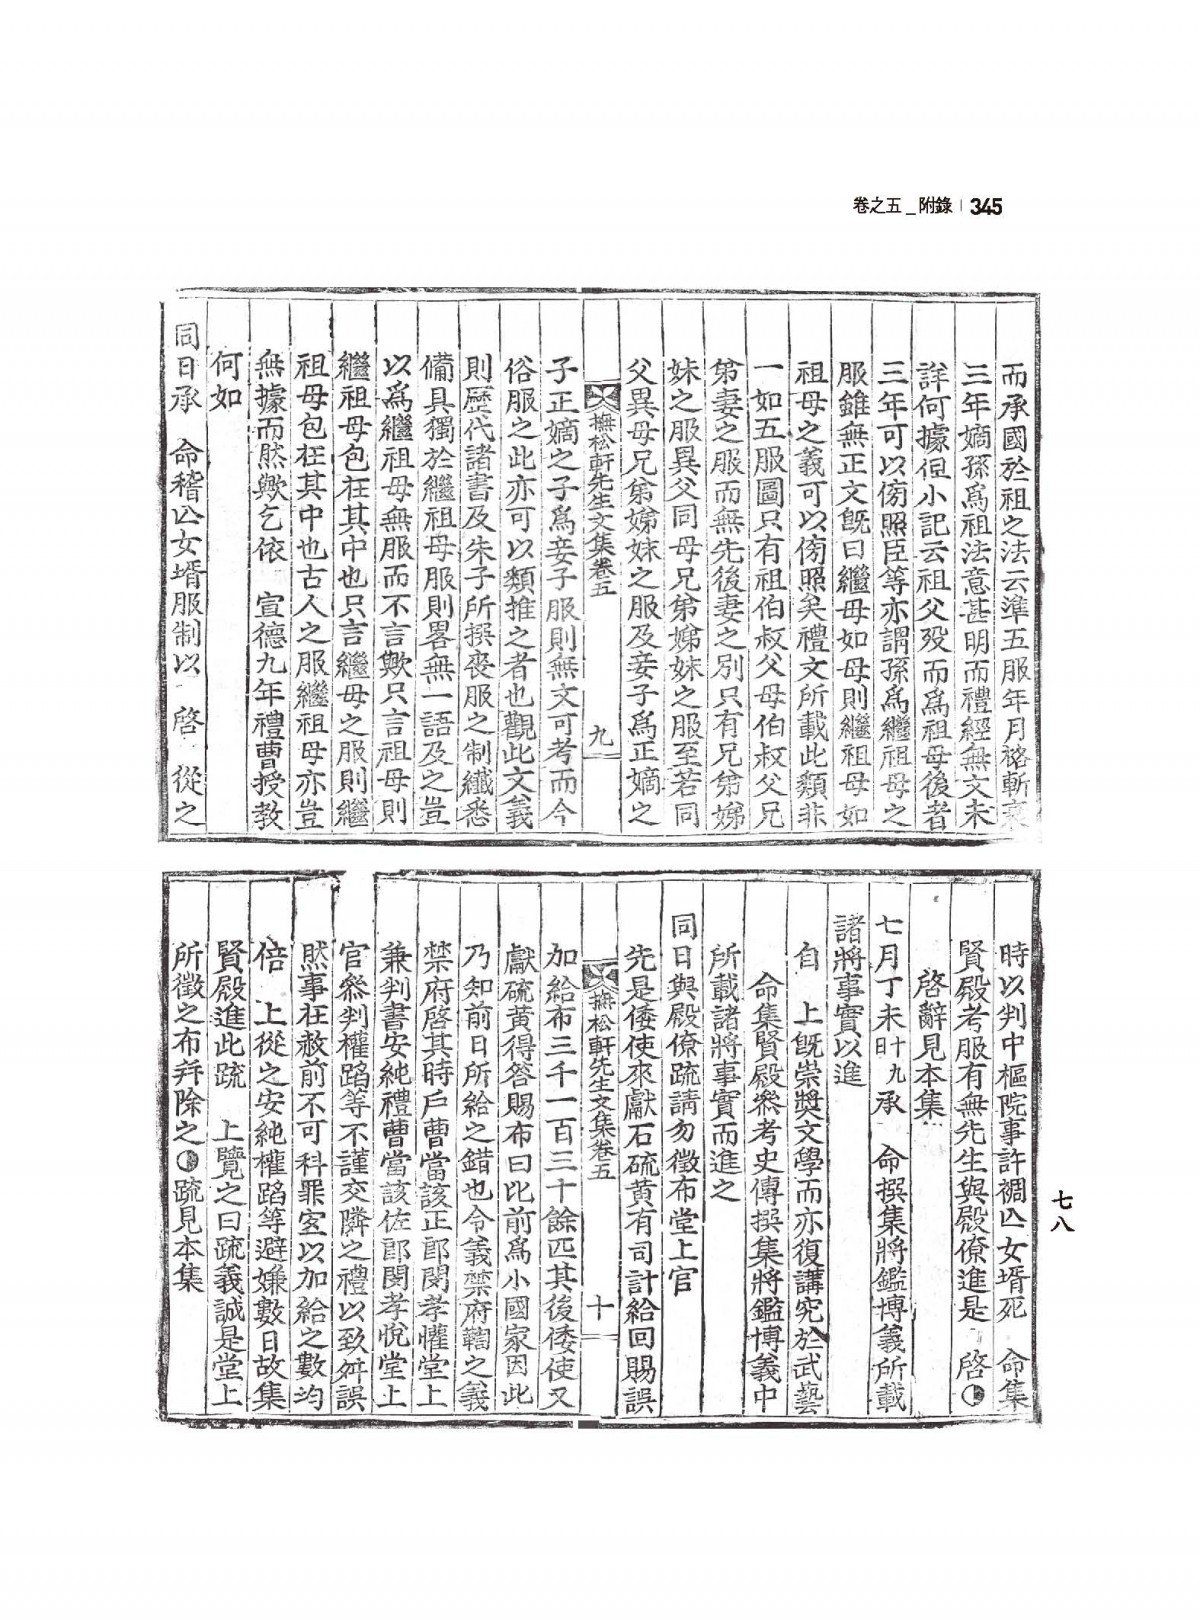 卷之五_附錄 | 345
而承國於祖之法云準五服年月裕斬衰
三年嫡孫爲祖法意甚明而禮經無文未
詳何據但小記云祖父歿而爲祖母後者
三年可以傍照臣等亦謂孫爲繼祖母之
服雖無正文旣曰繼母如母則繼祖母如
祖母之義可以傍照矣禮文所載此類非
一如五服圖只有祖伯叔父母伯叔父兄
弟妻之服而無先後妻之別只有兄弟娣
妹之服異父同母兄弟娣妹之服至若同
父異母兄弟娣妹之服及妾子爲正嫡之
撫松軒先生文集卷五 九
子正嫡之子爲妾子服則無文可考而今
俗服之此亦可以類推之者也觀此文義
則歷代諸書及朱子所撰喪服之制纖悉
備具獨於繼祖母服則畧無一語及之豈
以爲繼祖母無服而不言歟只言祖母則
繼祖母包在其中也只言繼母之服則繼
祖母包在其中也古人之服繼祖母亦豈
無據而然歟乞依 宣德九年禮曹授敎
何如
同日承 命稽亾女壻服制以 啓 從之
時以判中樞院事許稠亾女壻死 命集
賢殿考服有無先生與殿僚進是 啓
啓辭見本集
七月丁未十九日承 命撰集將鑑博義所載
諸將事實以進
自 上旣崇奬文學而亦復講究於武藝
命集賢殿叅考史傳撰集將鑑博義中
所載諸將事實而進之
同日與殿僚疏請勿徵布堂上官
先是倭使來獻石硫黄有司計給回賜誤
撫松軒先生文集卷五 十
加給布三千一百三十餘匹其後倭使又
獻硫黄得答賜布曰比前爲小國家因此
乃知前日所給之錯也令義禁府鞫之義
禁府啓其時戶曹當該正郞閔孝懽堂上
兼判書安純禮曹當該佐郞閔孝悅堂上
官叅判權蹈等不謹交隣之禮以致舛誤
然事在赦前不可科罪宜以加給之數均
倍 上從之安純權蹈等避嫌數日故集
賢殿進此疏 上覽之曰疏義誠是堂上
所徵之布幷除之 疏見本集
七八